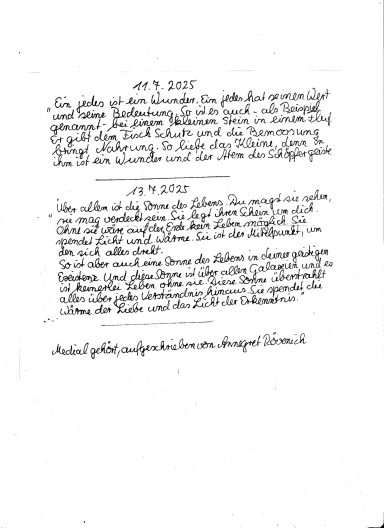 11.7.2025
"Ein jedes ist ein Wunder. Ein jedes hat seinen Wert
und seine Bedeutung. So ist es auch - als Beispiel
genannt - bei einem kleinen Stein in einem Fluß
Er gibt dem Fisch Schutz und die Bemoosung
bringt Nahrung. So liebe das Kleine, denn in
ihm ist ein Wunder und der Atem des Schöpfergeistes
13.7.2025
"Über allem ist die Sonne des Lebens. Du magst sie sehen,
sie mag verdeckt sein. Sie legt ihren Schein um dich.
Ohne sie wäre auf der Erde kein Leben möglich. Sie
spendet Licht und Wärme. Sie ist der Mittelpunkt, um
den sich alles dreht.
So ist aber auch eine Sonne des Lebens in deiner geistigen
Existenz. Und diese Sonne ist über allen Galaxien und es
ist keinerlei Leben ohne sie. Diese Sonne überstrahlt
alles über jedes Verständnis hinaus. Sie spendet die
Wärme der Liebe und das Licht der Erkenntnis."
Medial gehört, aufgeschrieben von Annegret